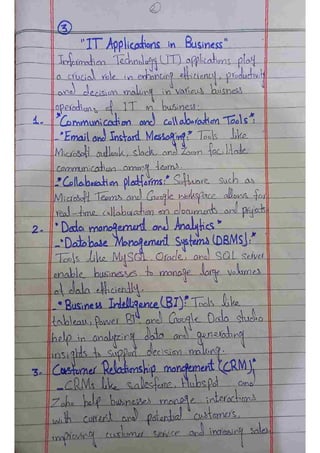 3
"IT Applications in Business"
Information Technology (IT) applications play
a crucial role in enhancing efficiency, productivity
and decision making in various business
operations of IT in business:
1. "Communication and collaboration Tools"
- "Email and Instant Messaging:" Tools like
Microsoft outlook, slack, and Zoom facilitate
communication among teams.
- "Collaboration platforms:" Software such as
Microsoft Teams and Google workspace allows for
real-time collaboration on documents and projects
2. "Data management and Analytics"
- "Database Management Systems (DBMS):"
Tools like MySQL, Oracle, and SQL Server
enable businesses to manage large volumes
of data efficiently.
- "Business Intelligence (BI):" Tools like
tableau, Power BI, and Google Data Studio
help in analyzing data and generating
insights to support decision making.
3. Customer Relationship management (CRM):"
- CRMs like salesforce, Hubspot and
Zoho help businesses manage interactions
with current and potential customers,
improving customer service and increasing sales